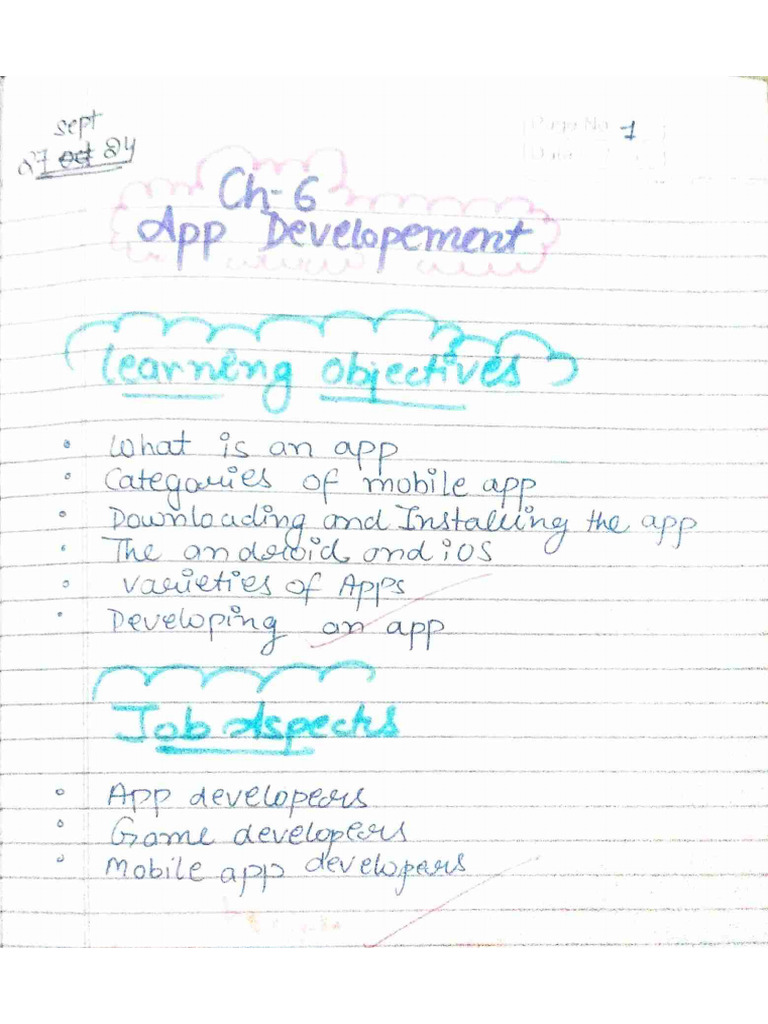 sept
27 oct 24
Page No. 1
Date
Ch-6
App Developement
Learning objectives
• What is an app
• Categories of mobile app
• Downloading and Installing the app
• The android and iOS
• Varieties of Apps
• Developing an app
Job Aspects
• App developers
• Game developers
• Mobile app developers